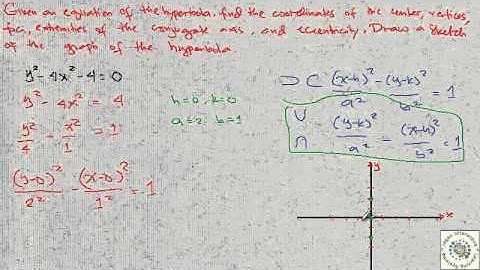 Given an equation of the hyperbola, find the coordinates of the center, vertices,
foci, extremities of the conjugate axis, and eccentricity. Draw a sketch
of the graph of the hyperbola.
y² - 4x² - 4 = 0
y² - 4x² = 4
y²/4 - x²/1 = 1
(y-0)²/2² - (x-0)²/1² = 1
h=0, k=0
a=2, b=1
⊃ ⊂ (x-h)²/a² - (y-k)²/b² = 1
∪ ∩ (y-k)²/a² - (x-h)²/b² = 1
y
x